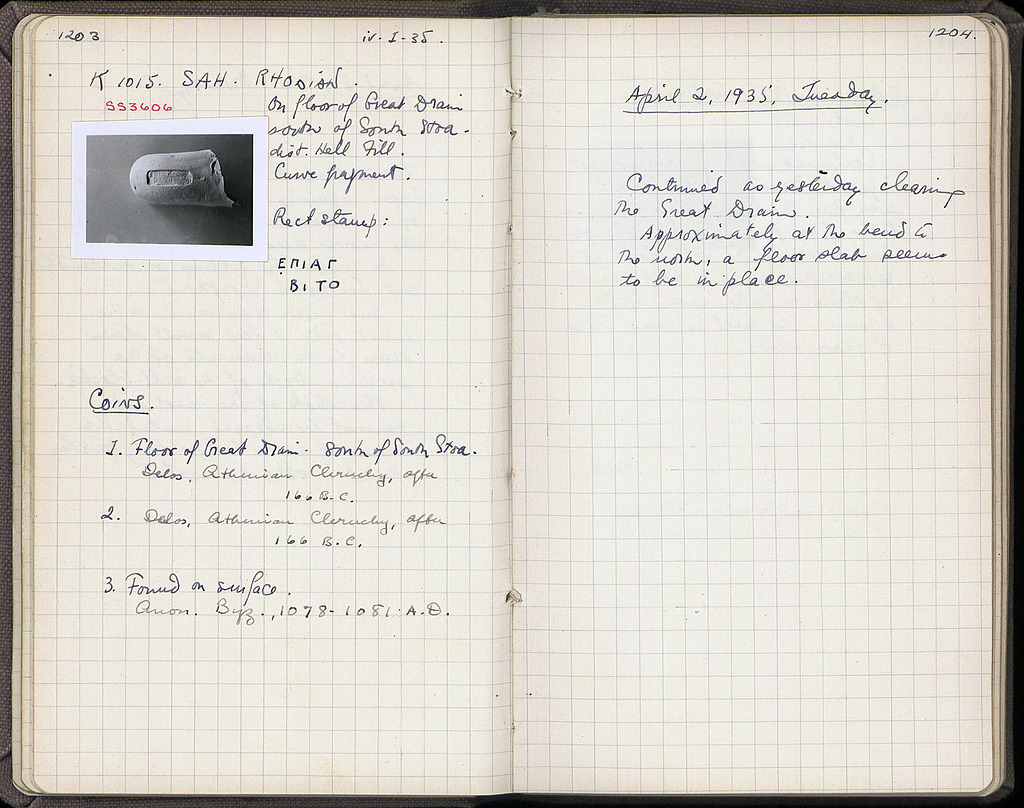 1203
iv. I-35.
K 1015. SAH. RHODIAN.
SS3606
On floor of Great Drain
south of South Stoa.
dist. Hell Fill.
Curve fragment.
Rect stamp:
ΕΠΙΑΓ
ΒΙΤΟ
Coins.
1. Floor of Great Drain. South of South Stoa.
Delos, Athenian Cleruchy, after
166 B.C.
2. Delos, Athenian Cleruchy, after
166 B.C.
3. Found on surface.
Anon. Byz., 1078-1081 A.D.
1204.
April 2, 1935, Tuesday.
Continued as yesterday clearing
the Great Drain.
Approximately at the bend to
the north, a floor slab seems
to be in place.